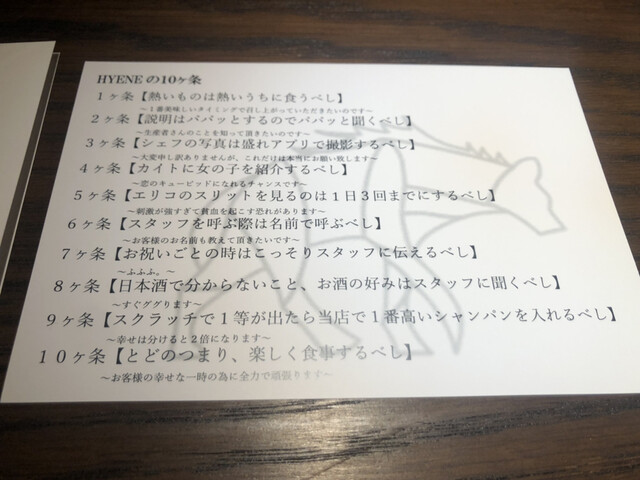 HYENE の10ヶ条
1ヶ条【熱いものは熱いうちに食うべし】
～1番美味しいタイミングで召し上がっていただきたいのです～
2ヶ条【説明はパパッとするのでパパッと聞くべし】
～生産者さんのことを知って頂きたいのです～
3ヶ条【シェフの写真は盛れアプリで撮影するべし】
～大変申し訳ありませんが、これだけは本当にお願い致します～
4ヶ条【カイトに女の子を紹介するべし】
～恋のキューピッドになれるチャンスです～
5ヶ条【エリコのスリットを見るのは1日3回までにするべし】
～刺激が強すぎて貧血を起こす恐れがあります～
6ヶ条【スタッフを呼ぶ際は名前で呼ぶべし】
～お客様のお名前も教えて頂きたいです～
7ヶ条【お祝いごとの時はこっそりスタッフに伝えるべし】
～ふふふ。～
8ヶ条【日本酒で分からないこと、お酒の好みはスタッフに聞くべし】
～すぐググります～
9ヶ条【スクラッチで1等が出たら当店で1番高いシャンパンを入れるべし】
～幸せは分けると2倍になります～
10ヶ条【とどのつまり、楽しく食事するべし】
～お客様の幸せな一時の為に全力で頑張ります～